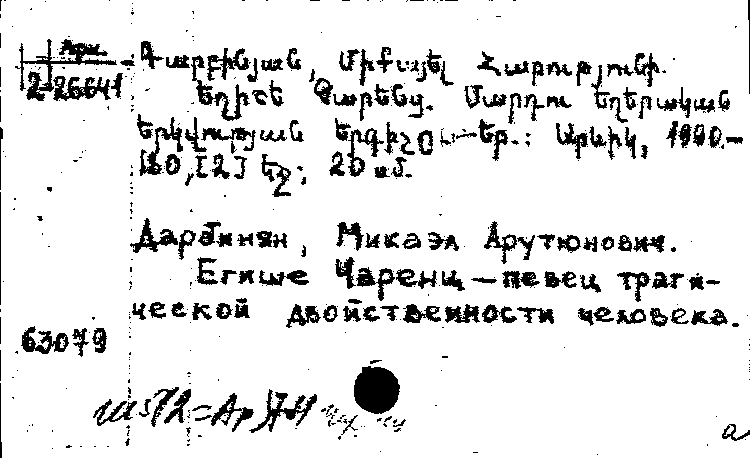 Арм.
2-26641 Դարբինյան, Միքայել Հարությունի.
Եղիշե Չարենց. Մարդու եղերական
երկվության երգիչը — Եր.: Արևիկ, 1990.—
180,[2] էջ; 20 սմ.
Дарбинян, Микаэл Арутюнович.
Егише Чаренц — певец траги-
ческой двойственности человека.
63079
а